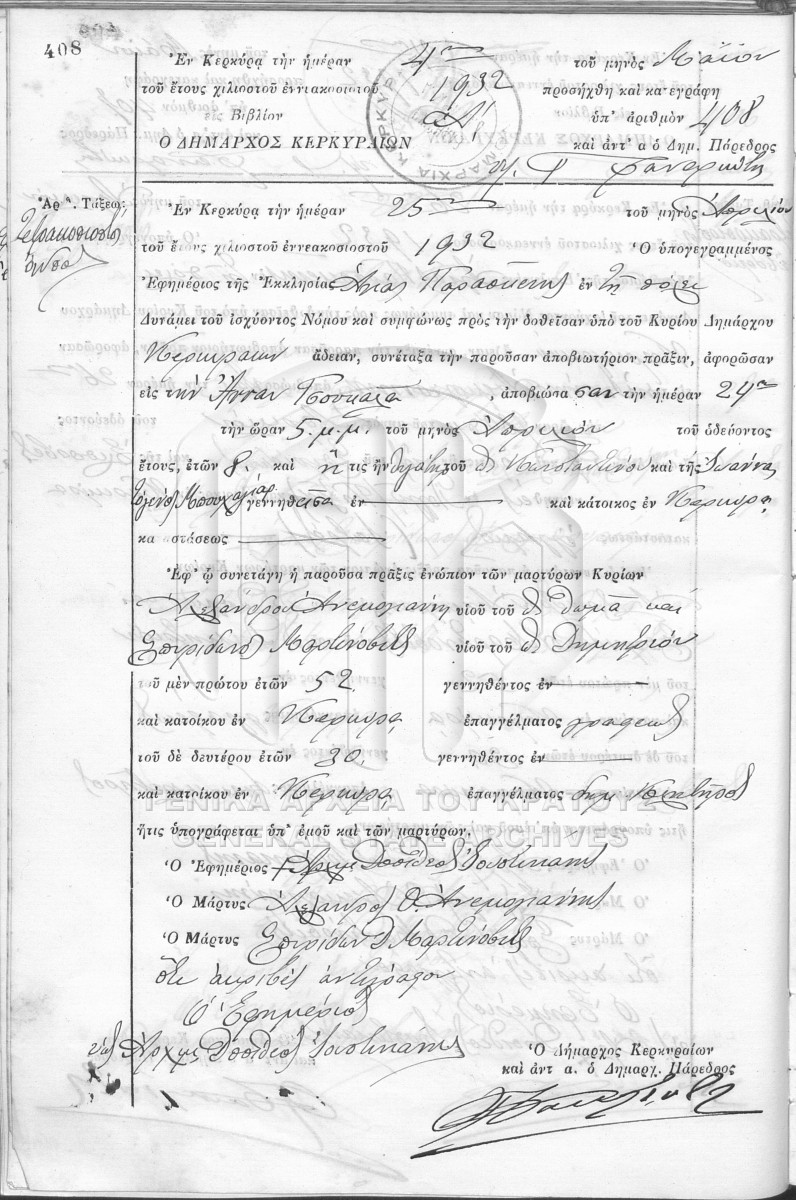 408
Ἐν Κερκύρᾳ τὴν ἡμέραν 4ην τοῦ μηνὸς Μαΐου
τοῦ ἔτους χιλιοστοῦ ἐννεακοσιοστοῦ 1932 προσήχθη καὶ κατεγράφη
εἰς Βιβλίον Α' ὑπ' ἀριθμὸν 408
Ο ΔΗΜΑΡΧΟΣ ΚΕΡΚΥΡΑΙΩΝ καὶ ἀντ' α ὁ Δημ. Πάρεδρος
Ἀρ α. Τάξεως
Ἐν Κερκύρᾳ τὴν ἡμέραν 25ην τοῦ μηνὸς Ἀπριλίου
τοῦ ἔτους χιλιοστοῦ ἐννεακοσιοστοῦ 1932 Ὁ ὑπογεγραμμένος
Ἐφημέριος τῆς Ἐκκλησίας Ἁγίας Παρασκευῆς ἐν τῇ πόλει
Δυνάμει τοῦ ἰσχύοντος Νόμου καὶ συμφώνως πρὸς τὴν δοθεῖσαν ὑπὸ τοῦ Κυρίου Δημάρχου
Κερκυραίων ἄδειαν, συνέταξα τὴν παροῦσαν ἀποβιωτήριον πρᾶξιν, ἀφορῶσαν
εἰς τὴν Ἄνναν Τσουκαλᾶ, ἀποβιώσασαν τὴν ἡμέραν 24ην
τὴν ὥραν 5 μ.μ. τοῦ μηνὸς Ἀπριλίου τοῦ ὁδεύοντος
ἔτους, ἐτῶν 8. καὶ ἥτις ἦν θυγάτηρ τοῦ Κωνσταντίνου καὶ τῆς Ἰωάννας
γεννηθεῖσα ἐν καὶ κάτοικος ἐν Κερκύρᾳ
καταστάσεως
Ἐφ' ᾧ συνετάγη ἡ παροῦσα πρᾶξις ἐνώπιον τῶν μαρτύρων Κυρίων
Ἀλεξάνδρου Ἀνεμογιάννη υἱοῦ τοῦ Θωμᾶ καὶ
Σπυρίδωνος Μαρτινόβιτς υἱοῦ τοῦ Δημητρίου
τοῦ μὲν πρώτου ἐτῶν 52 γεννηθέντος ἐν
καὶ κατοίκου ἐν Κερκύρᾳ ἐπαγγέλματος γραφεὺς
τοῦ δὲ δευτέρου ἐτῶν 30 γεννηθέντος ἐν
καὶ κατοίκου ἐν Κερκύρᾳ ἐπαγγέλματος δημ.
ΓΕΝΙΚΑ ΑΡΧΕΙΑ ΤΟΥ ΚΡΑΤΟΥΣ
ἥτις ὑπογράφεται ὑπ' ἐμοῦ καὶ τῶν μαρτύρων.
GENERAL STATE ARCHIVES
Ὁ Ἐφημέριος Ἀρχιμ. Δοσίθεος
Ὁ Μάρτυς Ἀλέξανδρος Θ. Ἀνεμογιάννης
Ὁ Μάρτυς Σπυρίδων Δ Μαρτινόβιτς
ὅτι ἀκριβὲς ἀντίγραφον
Ὁ Ἐφημέριος
Ἀρχιμ. Δοσίθεος
Ὁ Δήμαρχος Κερκυραίων
καὶ ἀντ α. ὁ Δημαρχ. Πάρεδρος